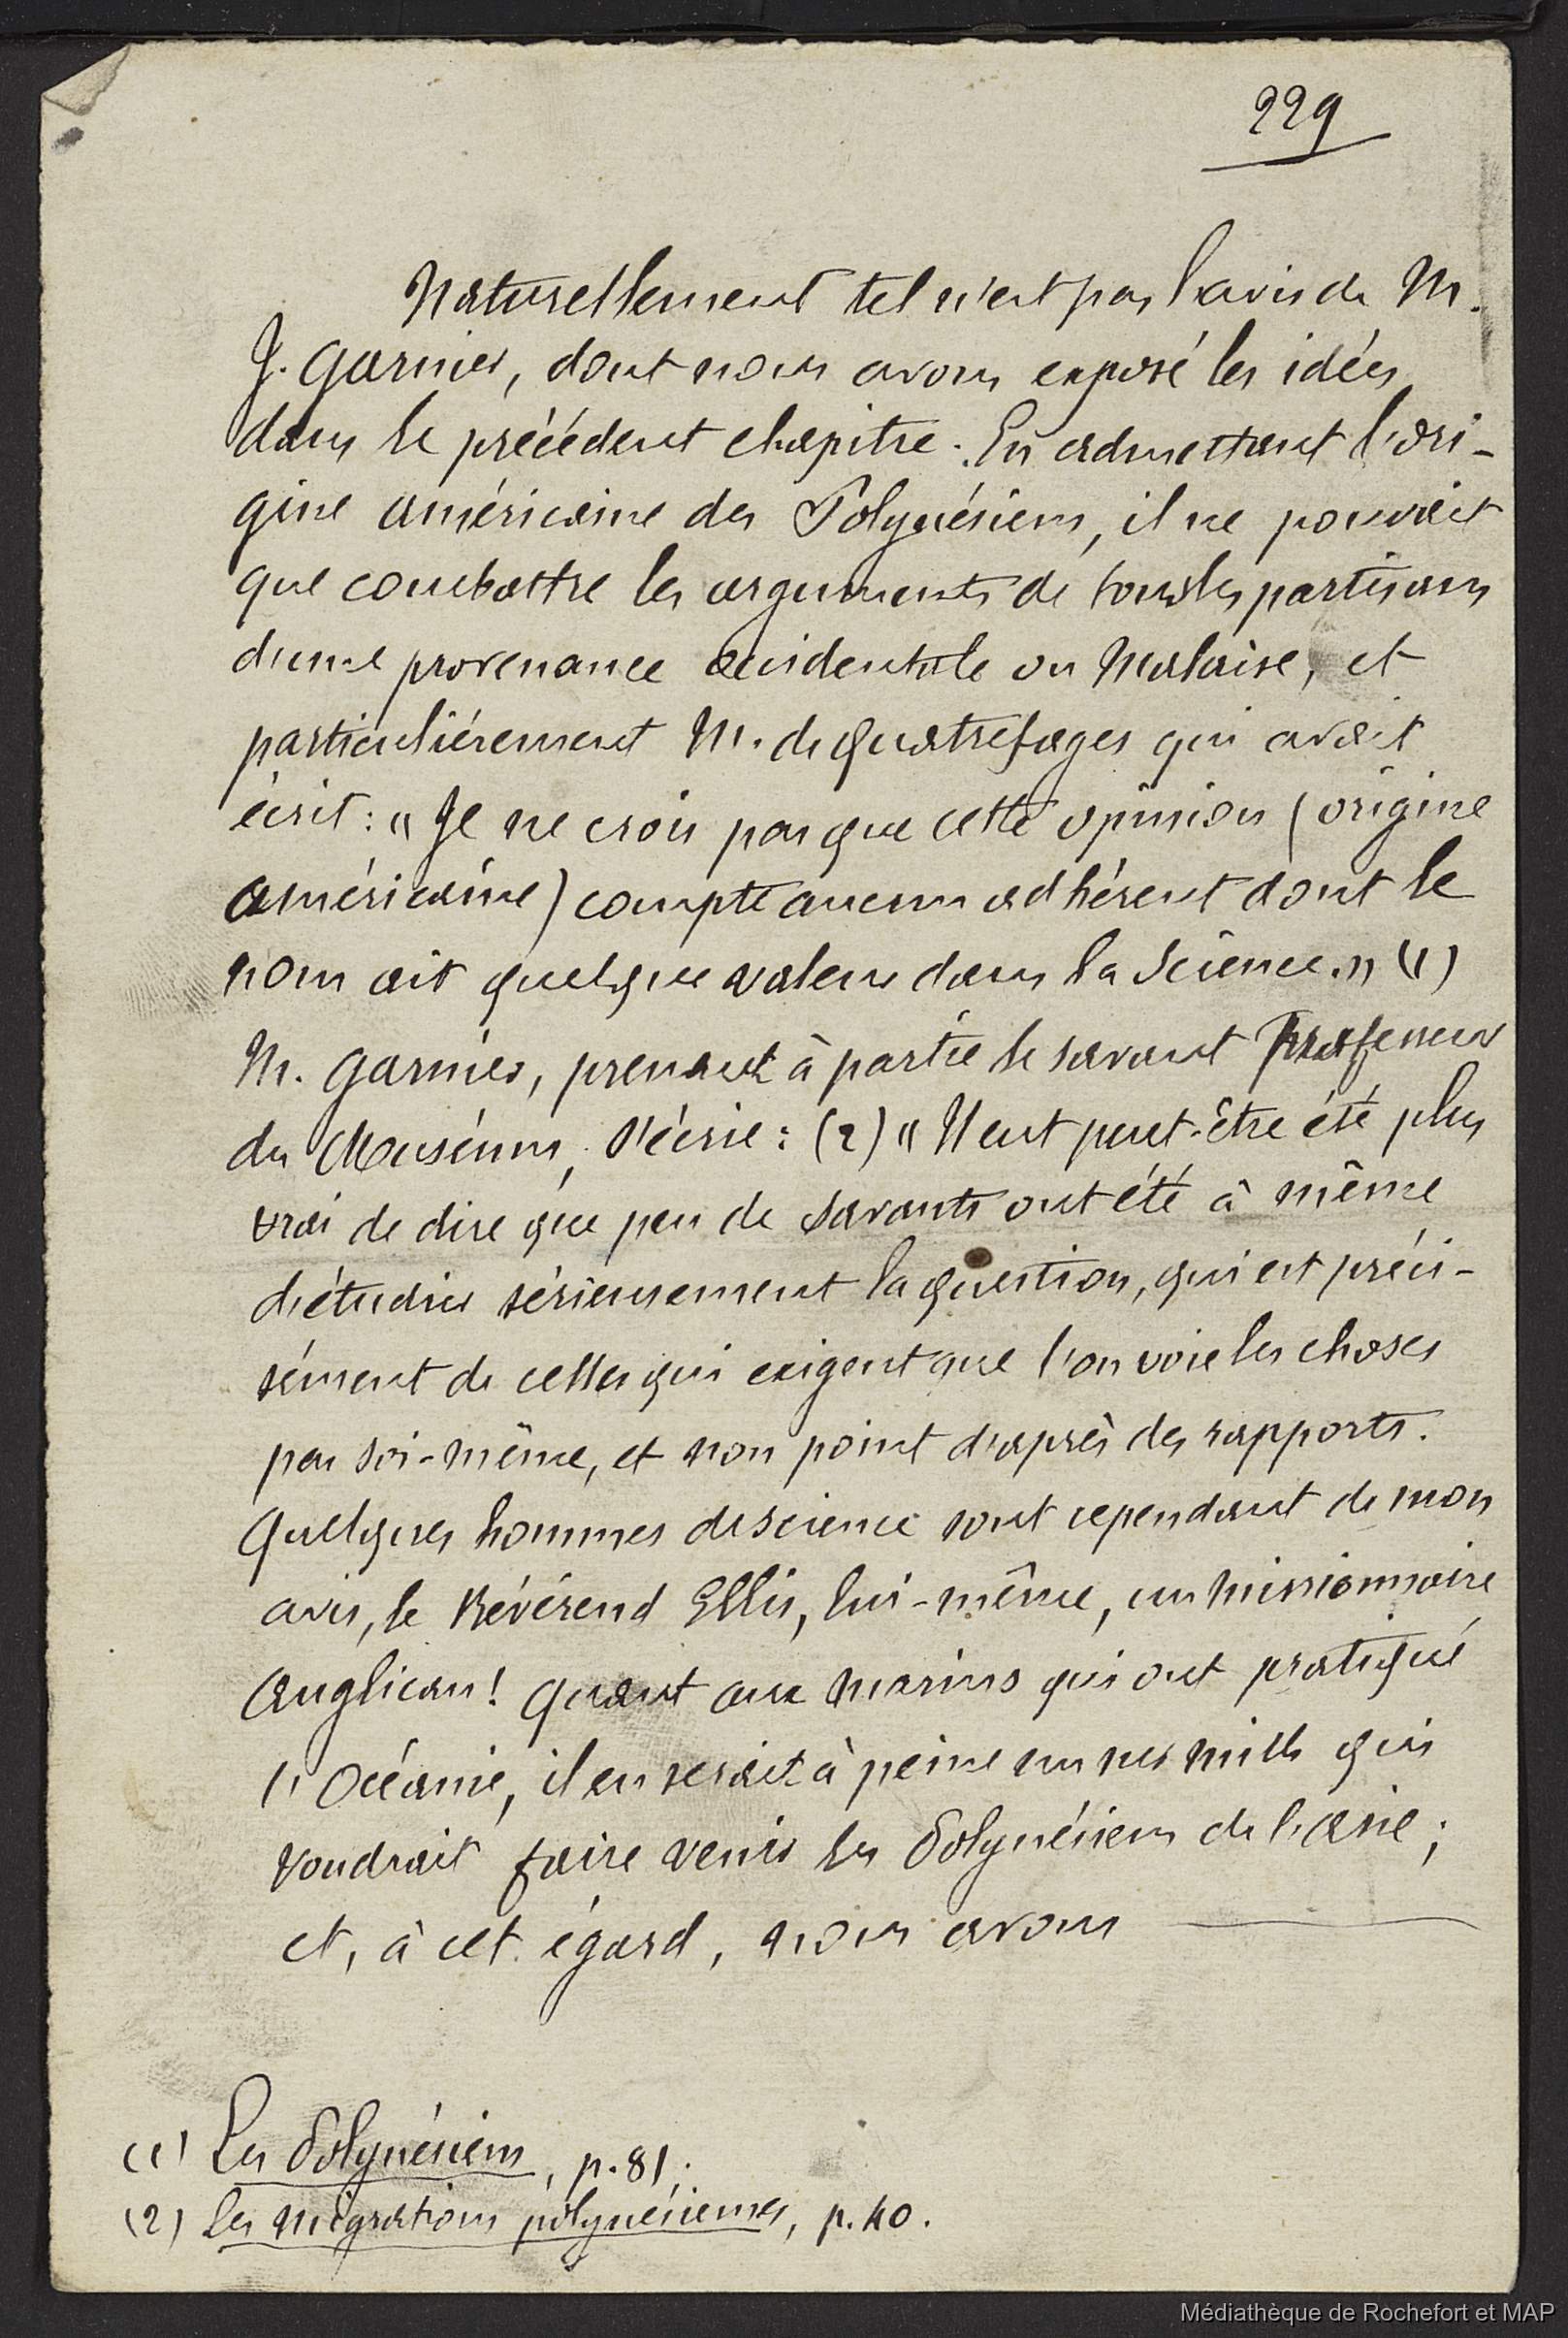 229
Naturellement tel n'est pas l'avis de M.
J. Garnier, dont nous avons exposé les idées
dans le précédent chapitre. En admettant l'ori-
gine américaine des Polynésiens, il ne pouvait
que combattre les arguments de tous les partisans
d'une provenance occidentale ou Malaise, et
particulièrement M. de Quatrefages qui avait
écrit : « Je ne crois pas que cette opinion (origine
américaine) compte aucun adhérent dont le
nom ait quelque valeur dans la Science. » (1)
M. Garnier, prenant à partie le savant Professeur
du Muséum, s'écrie : (2) « Il eut peut-être été plus
vrai de dire que peu de savants ont été à même
d'étudier sérieusement la question, qui est préci-
sément de celles qui exigent que l'on voie les choses
par soi-même, et non point d'après des rapports.
Quelques hommes de science sont cependant de mon
avis, le Révérend Ellis, lui-même, un missionnaire
Anglican ! Quant aux marins qui ont pratiqué
l'Océanie, il en serait à peine un sur mille qui
voudrait faire venir les Polynésiens de l'Asie ;
et, à cet égard, nous avons
(1) Les Polynésiens, p. 81.
(2) Les migrations polynésiennes, p. 40.
Médiathèque de Rochefort et MAP